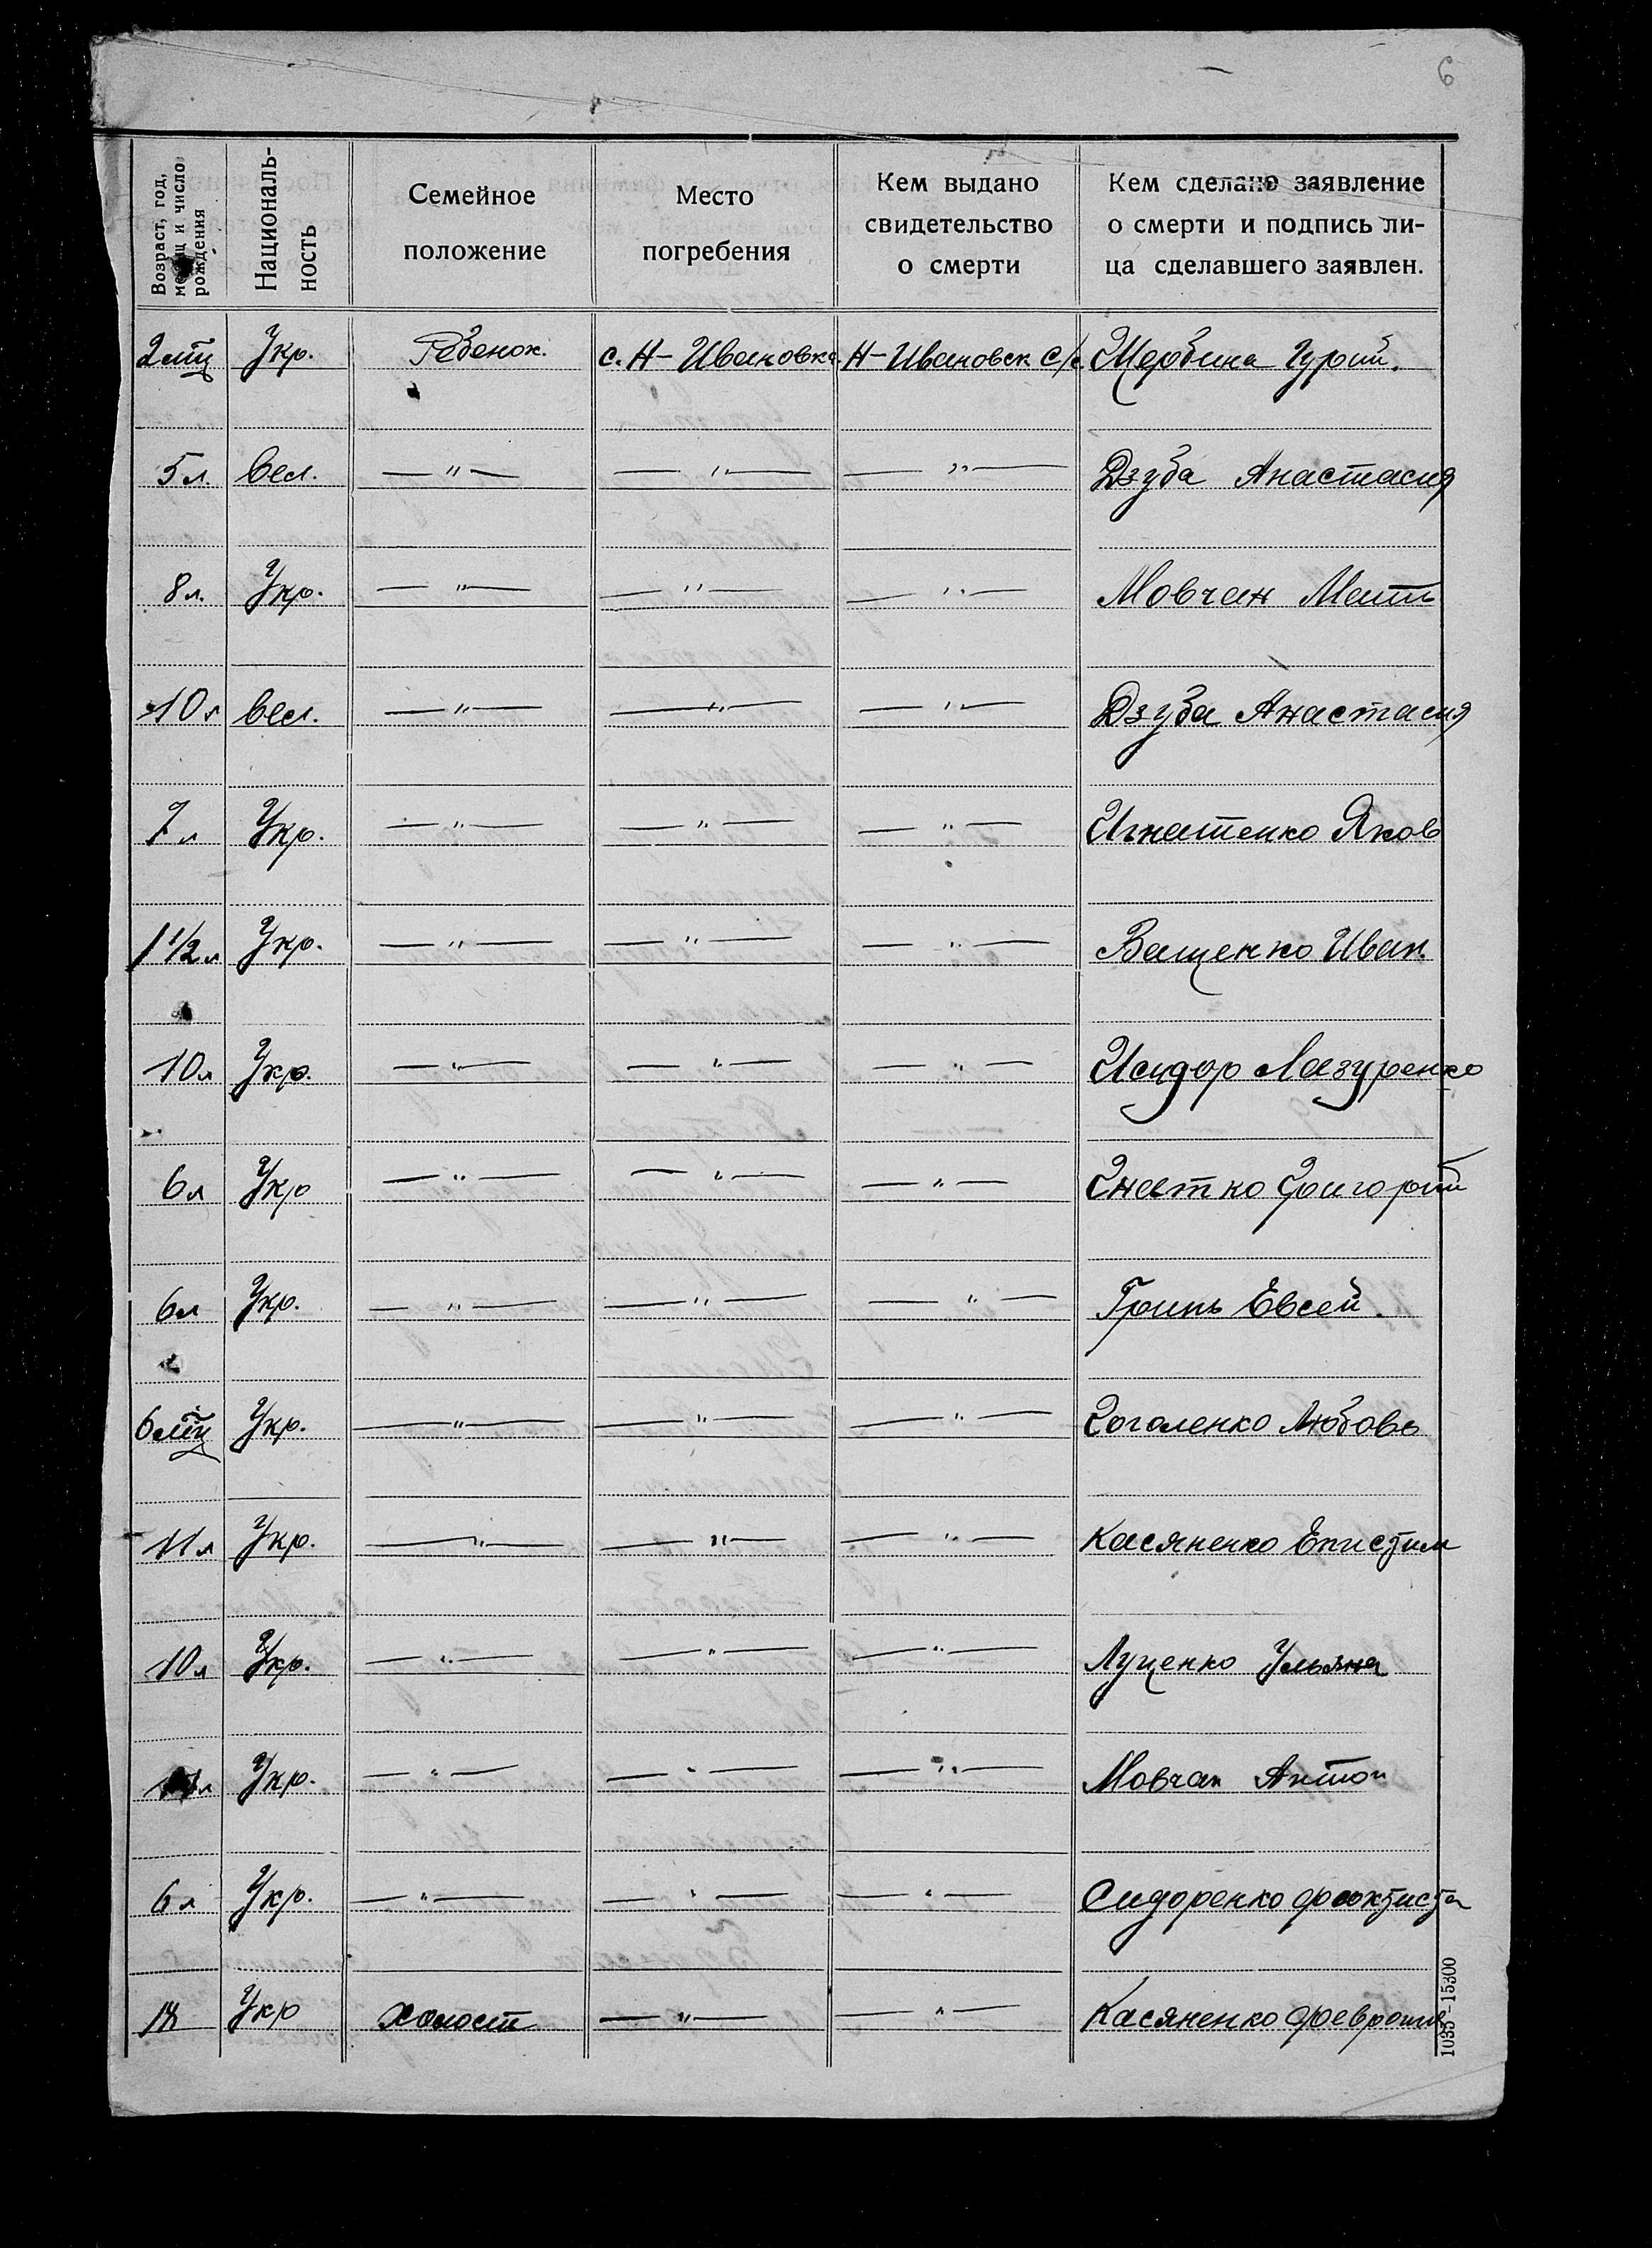 6
Возраст, год, месяц и число рождения
Националь-
ность
Семейное
положение
Место
погребения
Кем выдано
свидетельство
о смерти
Кем сделано заявление
о смерти и подпись ли-
ца сделавшего заявлен.
2 мц Укр. Ребенок. с. Н-Ивановка Н-Ивановск с/с. Щербина Гурий.
5 л. бел. —"— —"— —"— Дзуба Анастасия
8 л. Укр. —"— —"— —"— Мовчан Мать
10 бел. —"— —"— —"— Дзуба Анастасия
7 л Укр. —"— —"— —"— Игнатенко Яков
1 1/2 л Укр. —"— —"— —"— Ващенко Иван.
10 л Укр. —"— —"— —"— Исидор Мазуренко
6 л Укр —"— —"— —"— Гнатко Григорий
6 л Укр. —"— —"— —"— Гринь Евсей.
6 мц Укр. —"— —"— —"— Гоголенко Любовь
11 л Укр. —"— —"— —"— Касяненко Епистим
10 л Укр. —"— —"— —"— Луценко Ульяна
л Укр. —"— —"— —"— Мовчан Антон
6 л Укр. —"— —"— —"— Сидоренко Феоктиста
Укр Холост —"— —"— Касяненко
1033-15300